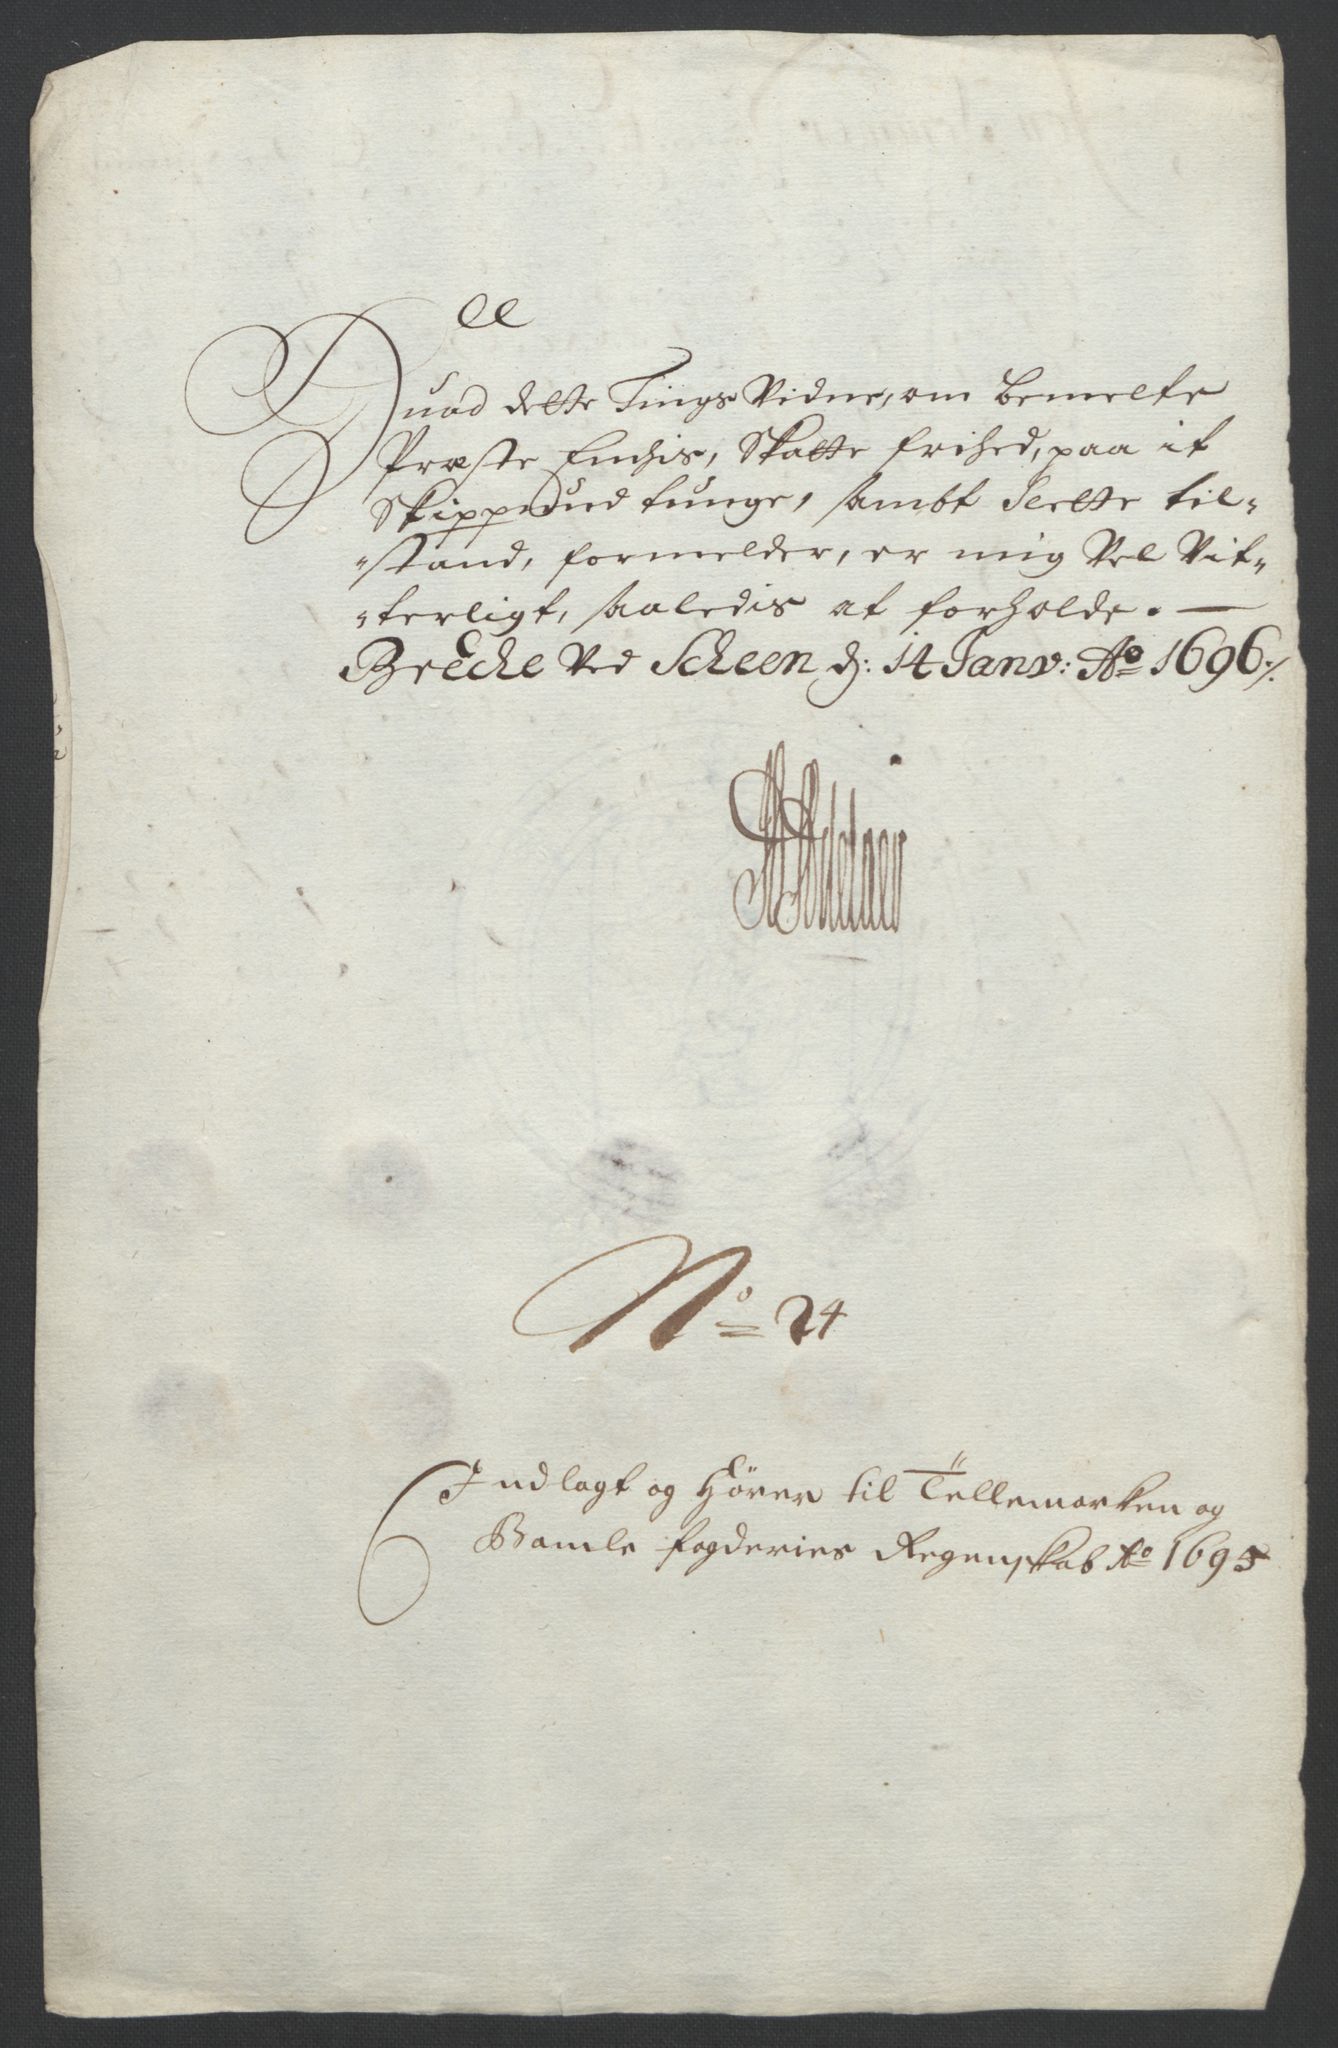 Huad dette Tings Vidne, om bemelte
Præste Enchis, Skatte frihed, paa it
Skippund tunge, sambt slette til-
-stand, formelder, er mig Vel Vit-
-terligt, saaledis at forholde. —
BrEche Ved Scheen d: 14 Janv: Ao 1696 ./.
No = 24
Indlagt og Hører til Tellemarken og
Bamle fogderies Regenskab Ao 1695